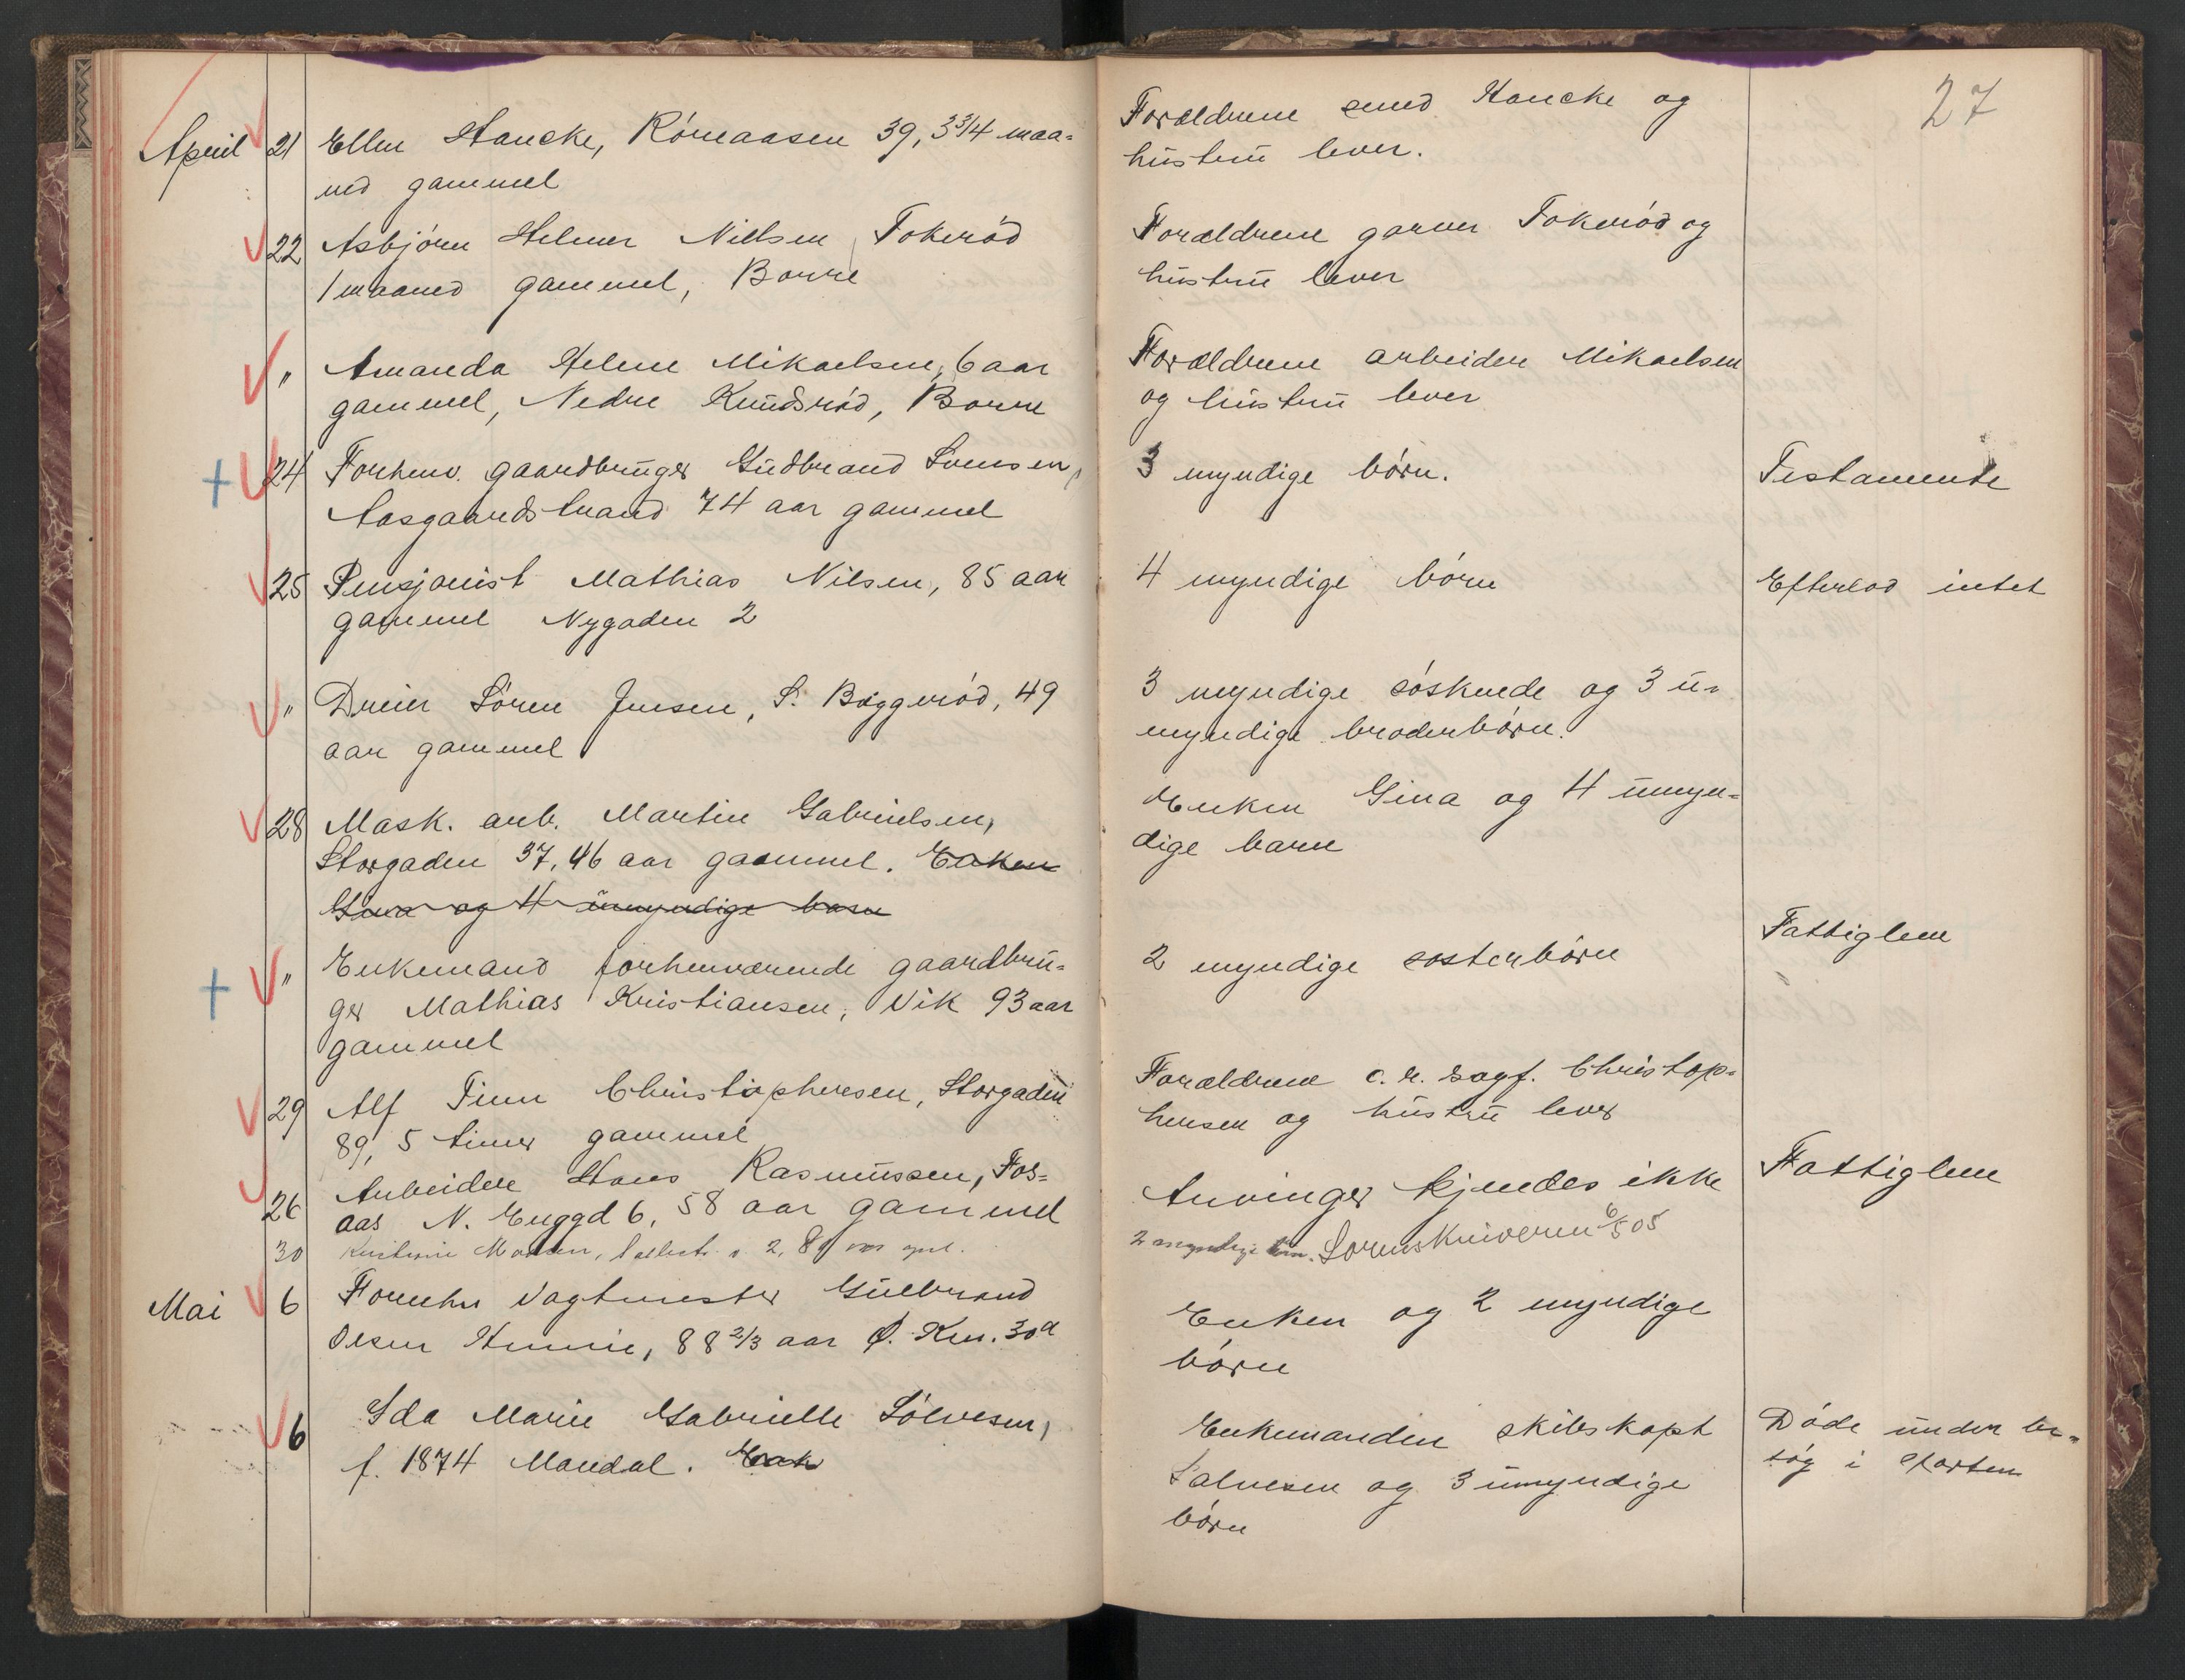 27
April 21 Ellen Hancke, Römaasen 39, 3 3/4 maa=
ned gammel
Forældrene smed Hancke og
hustru lever.
22 Asbjörn Helmer Nillsen, Tokeröd
1 maaned gammel, Borre
Forældrene garver Tokeröd og
hustru lever
" Amanda Helene Mikaelsen, 6 aar
gammel, Nedre Knudsröd, Borre
Forældrene arbeider Mikaelsen
og hustru lever
24 Forhenv. gaardbruger Gudbrand Svensen,
Aasgaardstrand 74 aar gammel
3 myndige börn.
Testamente
25 Pensjonist Mathias Nilsen, 85 aar
gammel Nygaden 2
4 myndige börn
Efterlod intet
" Dreier Sören Jensen, S. Baggeröd, 49
aar gammel
3 myndige söskende og 3 u=
myndige broderbörn.
28 Mask. arb. Martin Gabrielsen,
Storgaden 37, 46 aar gammel. Enken
Gina og 4 umyndige barn
Enken Gina og 4 umyn=
dige barn
" Enkemand forhenværende gaardbru=
ger Mathias Kristiansen, Vik 93 aar
gammel
2 myndige sosterbörn
Fattiglem
29 Alf Finn Christiophersen, Storgaden
89, 5 timer gammel
Forældrene o.r. sagf. Christop=
hersen og hustru lever
26 Arbeider Hans Rasmussen, Fos=
aas N. Enggd 6, 58 aar gammel
Arvinger kjendes ikke
Fattiglem
30 2, 89
2 myndige börn. Sorenskriveren 6/5 05
Mai 6 Forrehv Vagtmester Gulbrand
Olsen Hunnie, 88 2/3 aar Ø. Km. 30a
Enken og 2 myndige
börn
6 Ida Marie Gabrielle Sölvesen,
f. 1874 Mandal. Enk
Enkemanden skibskapt
Salvesen og 3 umyndige
börn
Döde under be=
sög i Horten